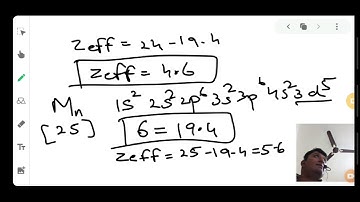 Zeff = 24-19.4
Zeff = 4.6
Mn 1s² 2s² 2p⁶ 3s² 3p⁶ 4s² 3d⁵
[25] 6 = 19.4
Zeff = 25-19.4 = 5-6